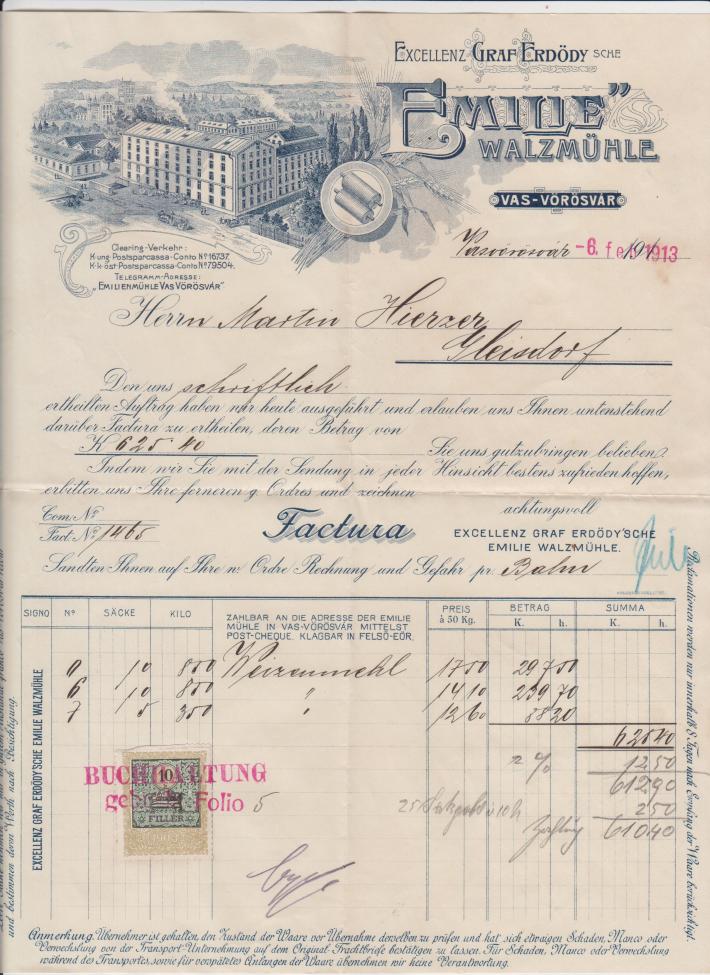 EXCELLENZ GRAF ERDÖDY SCHE
"EMILIE"
WALZMÜHLE
VAS-VÖRÖSVÁR
Clearing-Verkehr:
K. ung. Postsparcassa-Conto Nº 16737.
K. k. öst. Postsparcassa-Conto Nº 79504.
TELEGRAMM-ADRESSE:
"EMILIENMÜHLE VAS VÖRÖSVÁR"
Vasvörösvár -6. feb. 191 1913
Herrn Martin Hierzer
Gleisdorf
Den uns schriftlich
ertheilten Auftrag haben wir heute ausgeführt und erlauben uns Ihnen untenstehend
darüber Factura zu ertheilen, deren Betrag von
K 625 40 Sie uns gutzubringen belieben.
Indem wir Sie mit der Sendung in jeder Hinsicht bestens zufrieden hoffen,
erbitten uns Ihre ferneren g. Ordres und zeichnen
achtungsvoll
Com. Nº
Fact. Nº 1465
Factura
EXCELLENZ GRAF ERDÖDY'SCHE
EMILIE WALZMÜHLE.
Sandten Ihnen auf Ihre w. Ordre Rechnung und Gefahr pr. Bahn
SIGNO Nº SÄCKE KILO
ZAHLBAR AN DIE ADRESSE DER EMILIE
MÜHLE IN VAS-VÖRÖSVÁR MITTELST
POST-CHEQUE. KLAGBAR IN FELSÖ-EÖR.
PREIS
à 50 Kg.
BETRAG
K. h.
SUMMA
K. h.
0 10 800 Weizenmehl 17 50 297 50
6 10 800 " 14 10 239 70
7 5 350 " 12 60 88 20
625 40
2 % 12 50
612 90
2 50
610 40
BUCHHALTUNG
Folio 5
10
FILLÉR
EXCELLENZ GRAF ERDÖDY'SCHE EMILIE WALZMÜHLE
und bestimmen deren Werth nach Besichtigung.
Reclamationen werden nur innerhalb 8 Tagen nach Empfang der Waare berücksichtigt.
Anmerkung. Übernehmer ist gehalten, den Zustand der Waare vor Übernahme derselben zu prüfen und hat sich etwaigen Schaden, Manco oder
Verwechslung von der Transport-Unternehmung auf dem Original-Frachtbriefe bestätigen zu lassen. Für Schaden, Manco oder Verwechslung
während des Transportes, sowie für verspätetes Anlangen der Waare übernehmen wir keine Verantwortung.